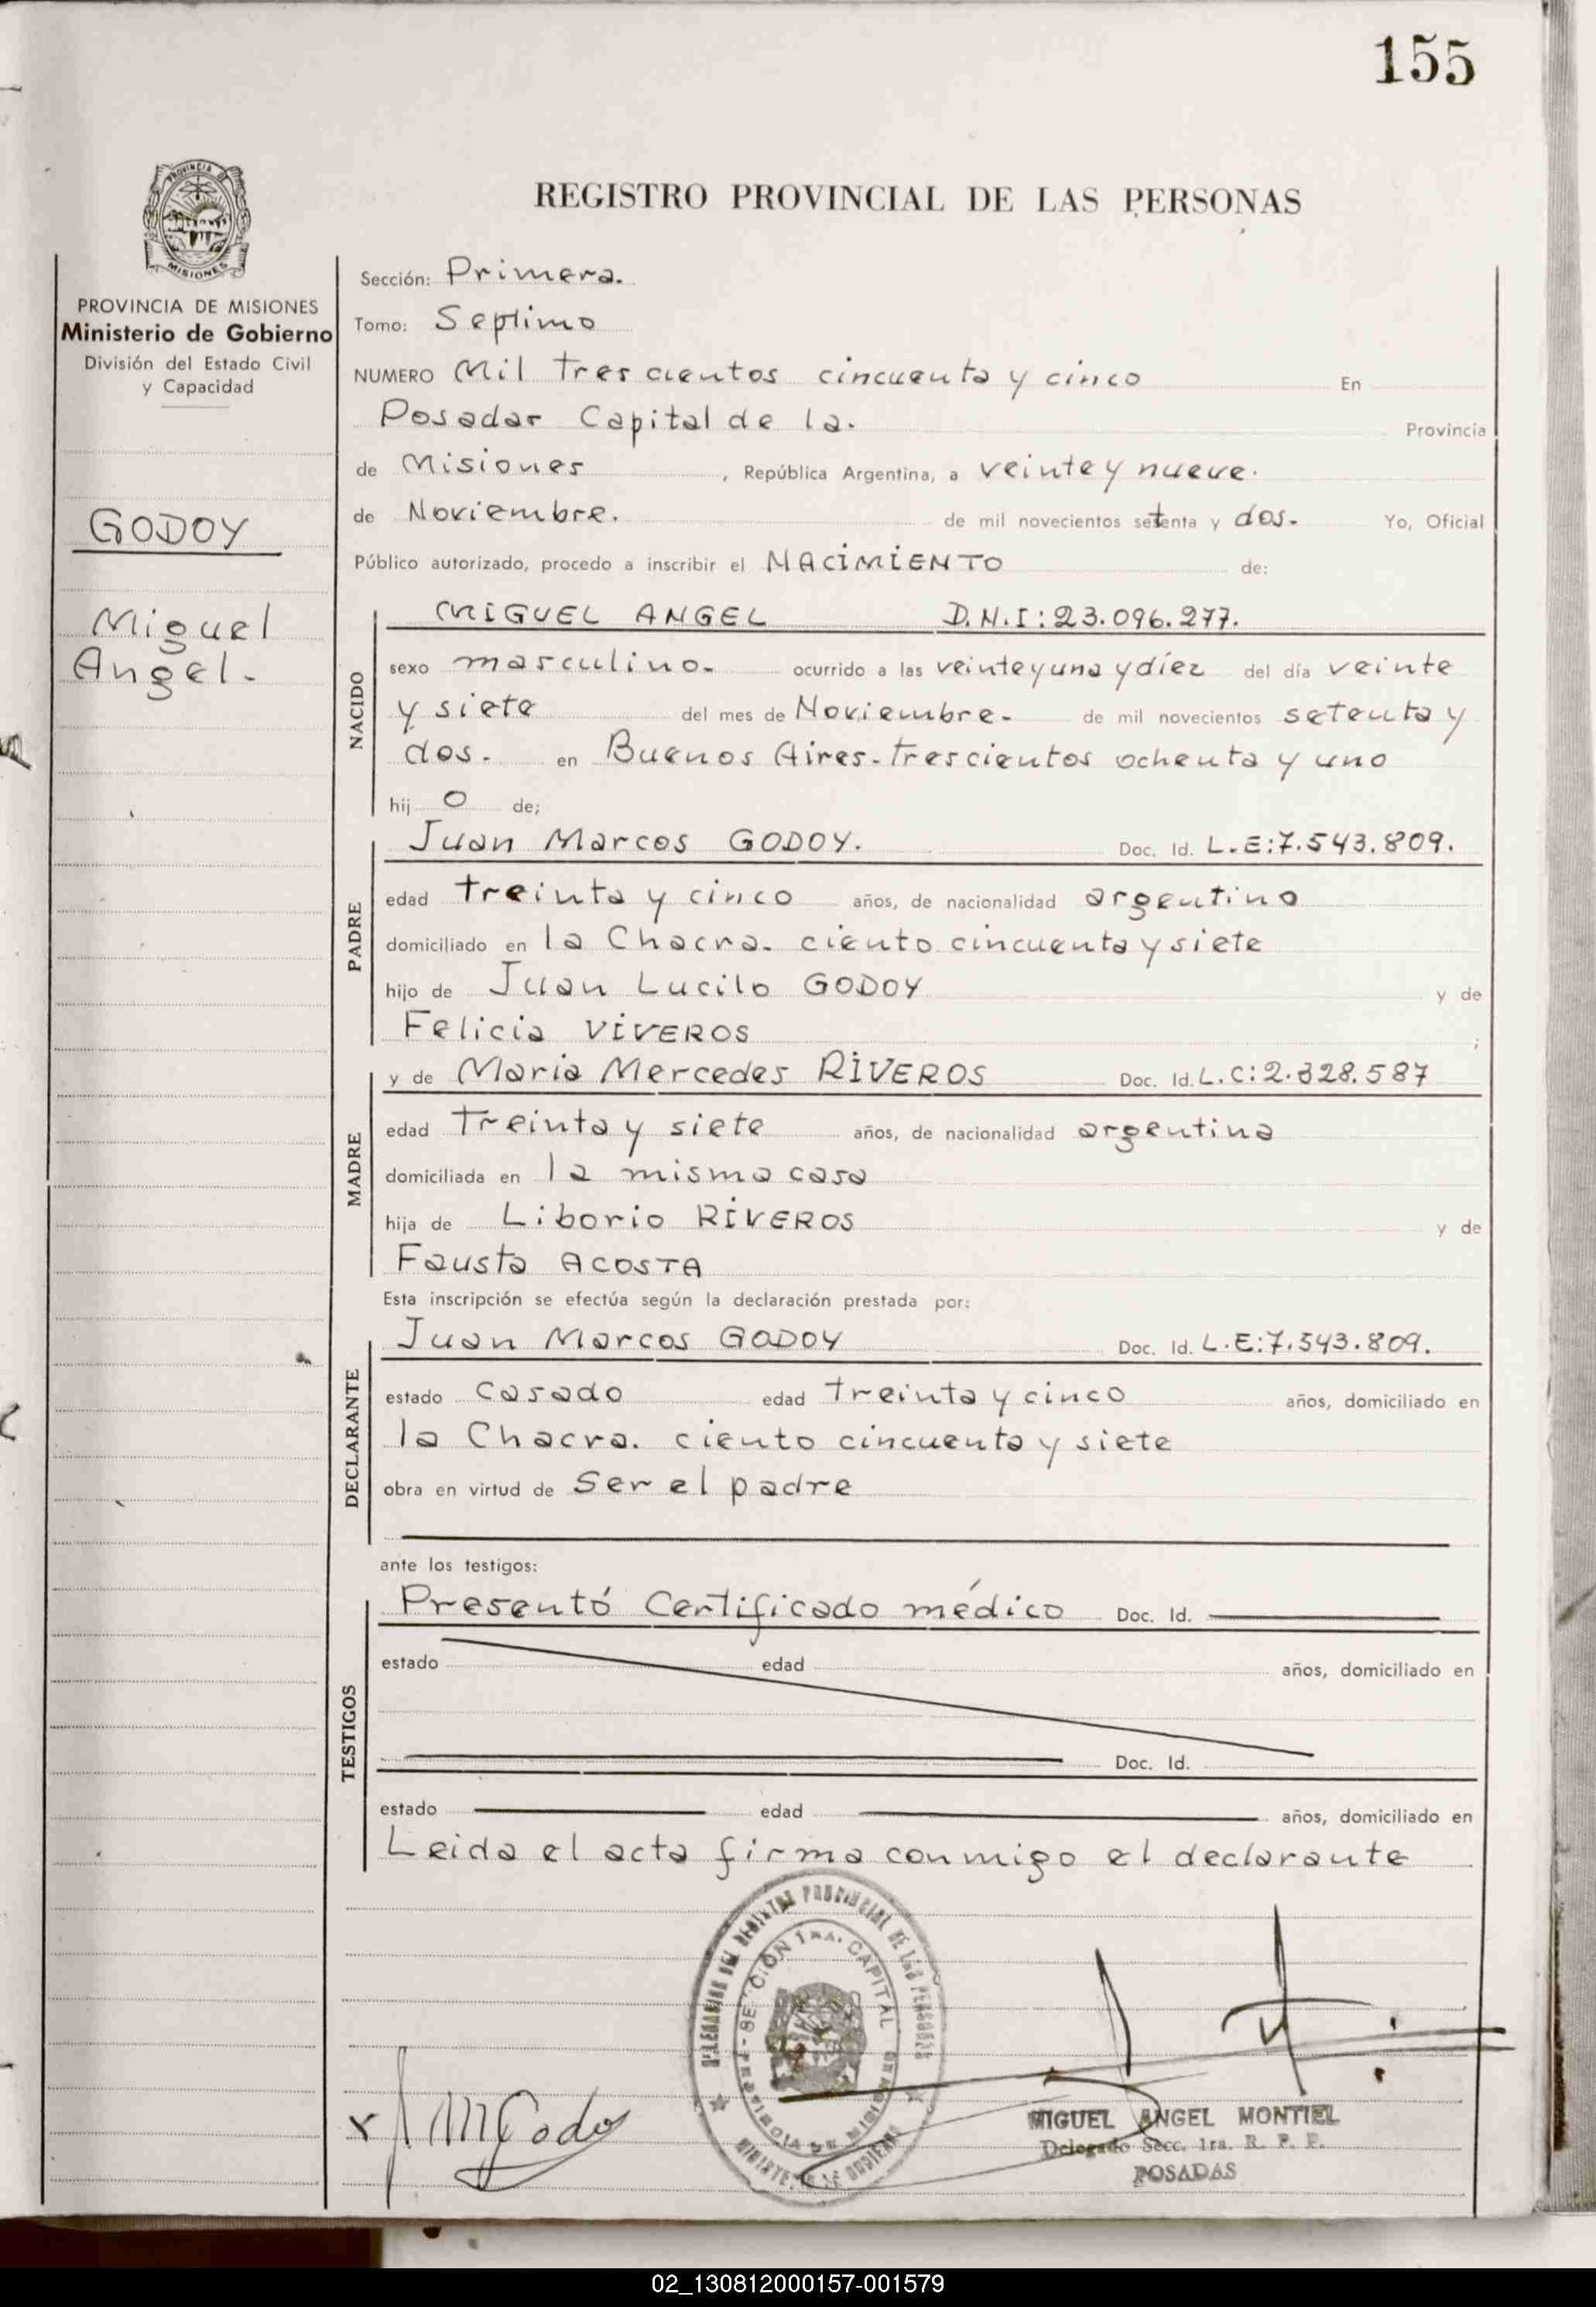 155
REGISTRO PROVINCIAL DE LAS PERSONAS
PROVINCIA DE MISIONES
Ministerio de Gobierno
División del Estado Civil
y Capacidad
GODOY
Miguel
Angel.-
Sección: Primera.
Tomo: Septimo
NUMERO Mil Trescientos cincuenta y cinco En
Posadas Capital de la. Provincia
de Misiones, República Argentina, a veinte y nueve.
de Noviembre. de mil novecientos setenta y dos.- Yo, Oficial
Público autorizado, procedo a inscribir el NACIMIENTO de:
NACIDO
MIGUEL ANGEL D.N.I: 23.096.277.
sexo masculino.- ocurrido a las veinte y una y diez del día veinte
y siete del mes de Noviembre.- de mil novecientos setenta y
dos.- en Buenos Aires-trescientos ochenta y uno
hij o de;
PADRE
Juan Marcos GODOY. Doc. Id. L.E:7.543.809.
edad treinta y cinco años, de nacionalidad argentino
domiciliado en la Chacra. ciento cincuenta y siete
hijo de Juan Lucilo GODOY y de
Felicia VIVEROS ;
MADRE
y de Maria Mercedes RIVEROS Doc. Id. L.C:2.328.587
edad Treinta y siete años, de nacionalidad argentina
domiciliada en la misma casa
hija de Liborio RIVEROS y de
Fausta ACOSTA
Esta inscripción se efectúa según la declaración prestada por:
DECLARANTE
Juan Marcos GODOY Doc. Id. L.E:7.543.809.
estado casado edad treinta y cinco años, domiciliado en
la Chacra. ciento cincuenta y siete
obra en virtud de Ser el padre
ante los testigos:
TESTIGOS
Presentó Certificado médico Doc. Id.
estado edad años, domiciliado en
Doc. Id.
estado edad años, domiciliado en
Leida el acta firma conmigo el declarante
DELEGACION DEL REGISTRO PROVINCIAL DE LAS PERSONAS
SECCION 1RA. CAPITAL
PROVINCIA DE MISIONES
MINISTERIO DE GOBIERNO
JMGodoy
MIGUEL ANGEL MONTIEL
Delegado Secc. 1ra. R. P. P.
POSADAS
02_130812000157-001579